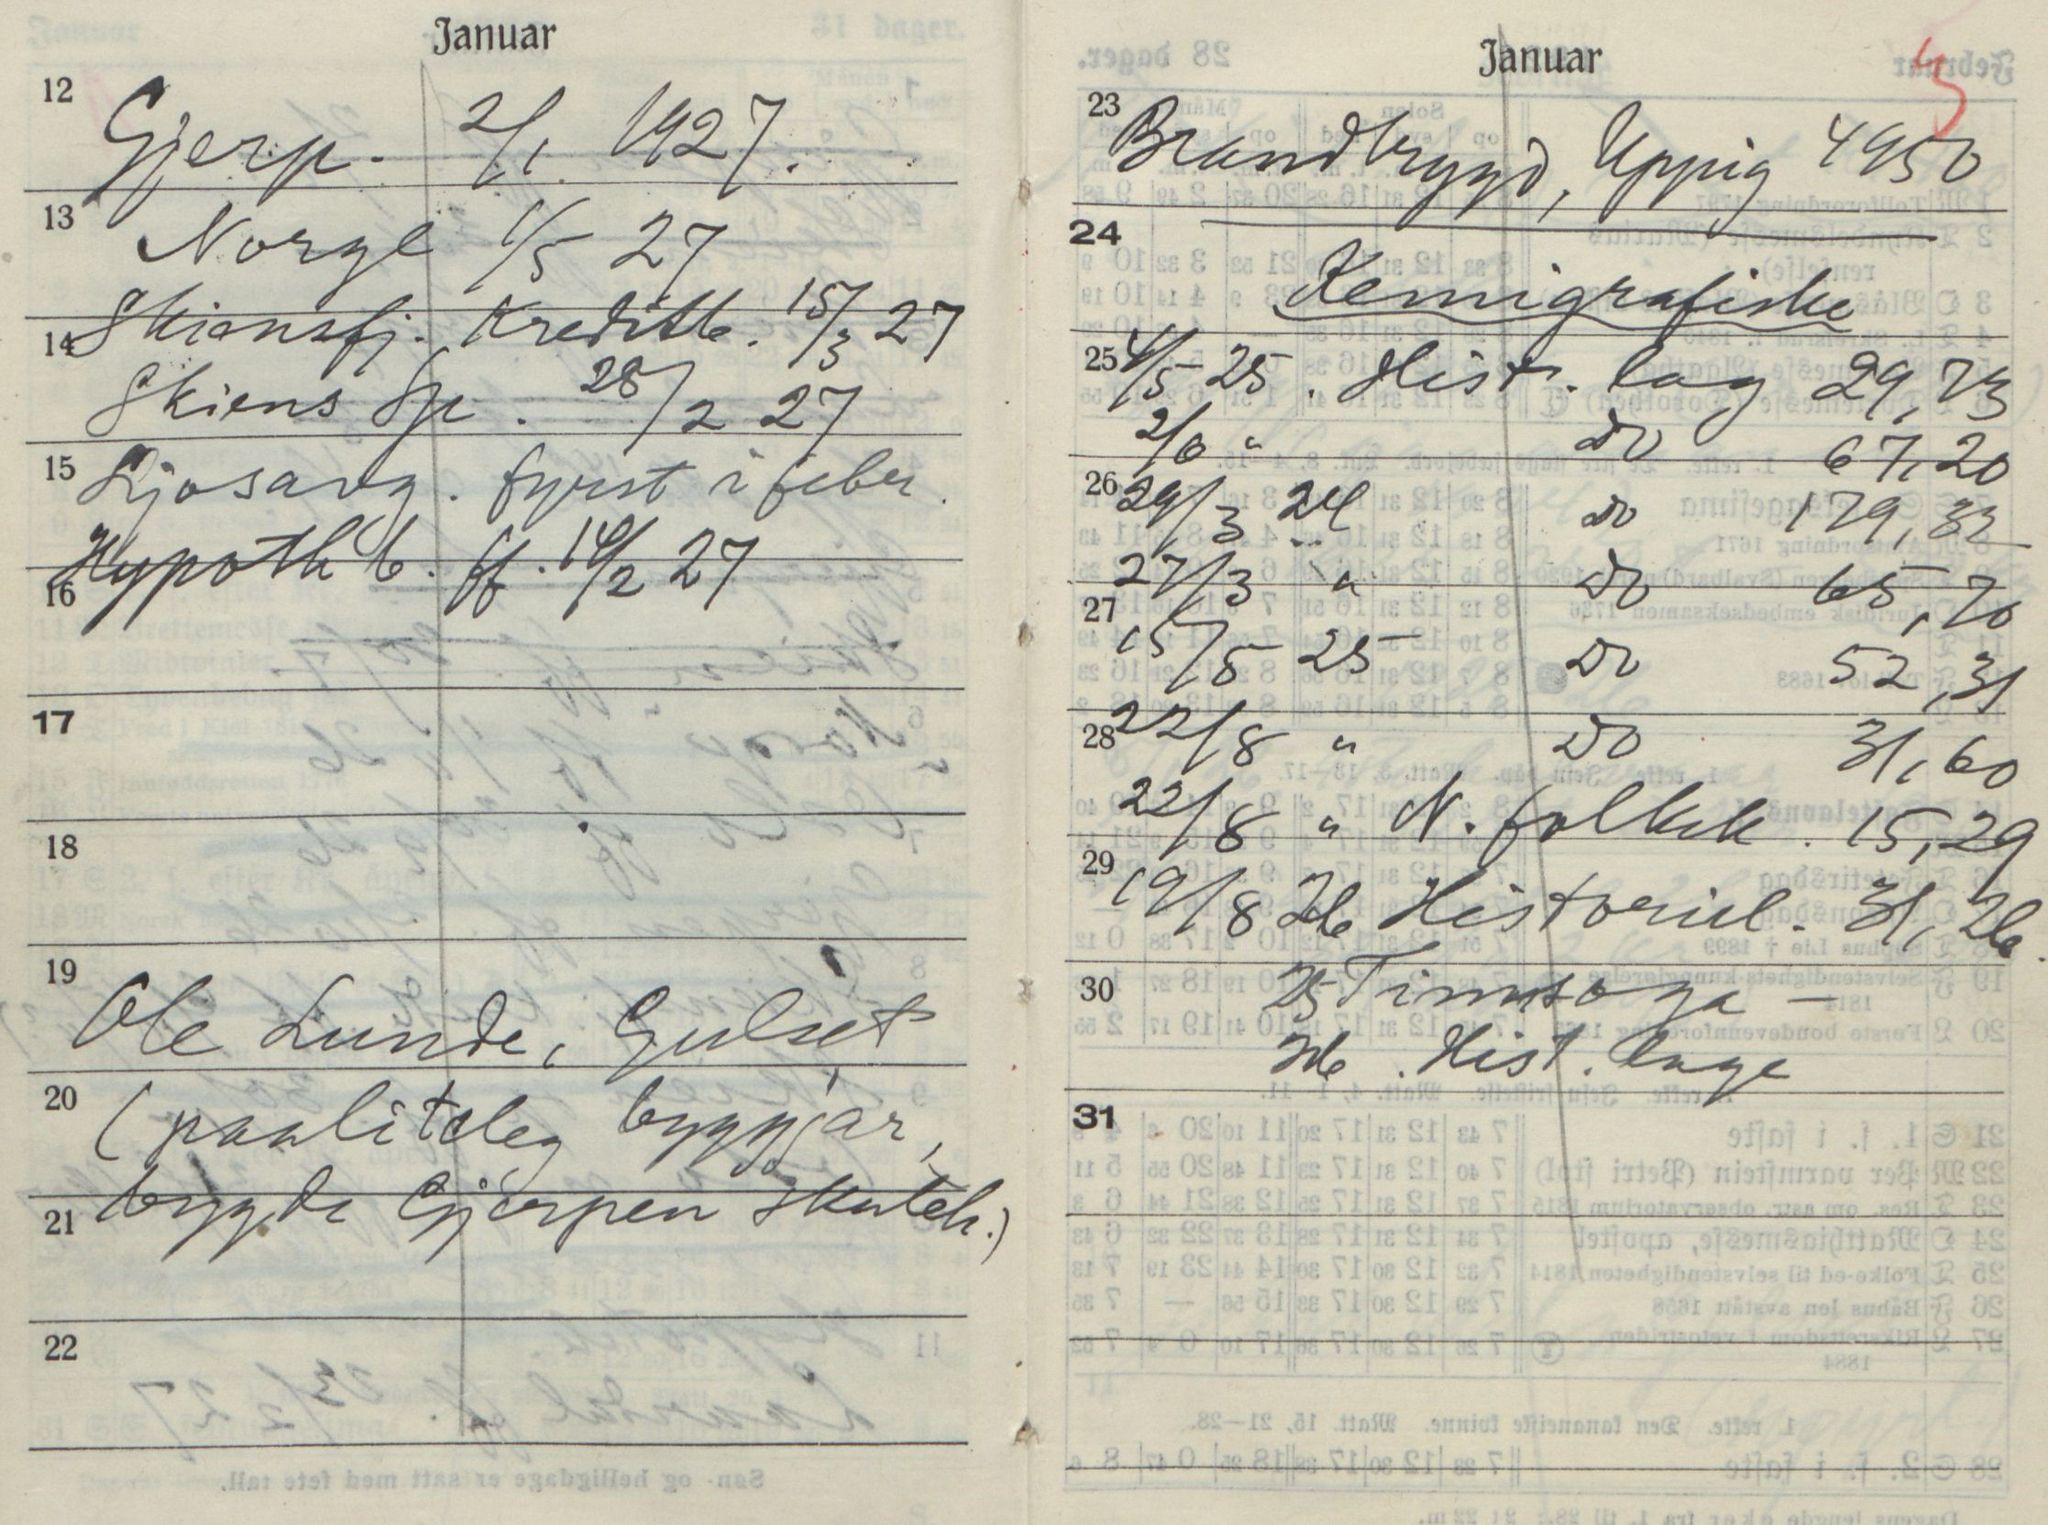 Januar
12
Gjerp. 2/1 1927.
13
Norge 1/5 27
14
Skiensfj. Kreditb. 15/3 27
Skiens Sp. 28/2 27
15
Ljosang. fyrst i febr.
16
Hypoth b. ff. 10/2 27
17
18
19
Ole Lunde, Gulset
20
(paaliteleg byggjar,
21
bygde Gjerpen skuleh.)
22
Januar
5
23
Brandbygd, Uppig 4950
24
Kemigrafiske
25
4/5 25. Hist. lag 29,73
2/6 " Do 67,20
26
29/3 24 Do 179,33
27/3 " Do 65,70
27
15/5 25 Do 52,31
28
22/8 " Do 31,60
22/8 " N. folkek. 15,29
29
19/8 26 Historiel. 31,26.
30
25 Timesoga —
26. Hist. lage
31